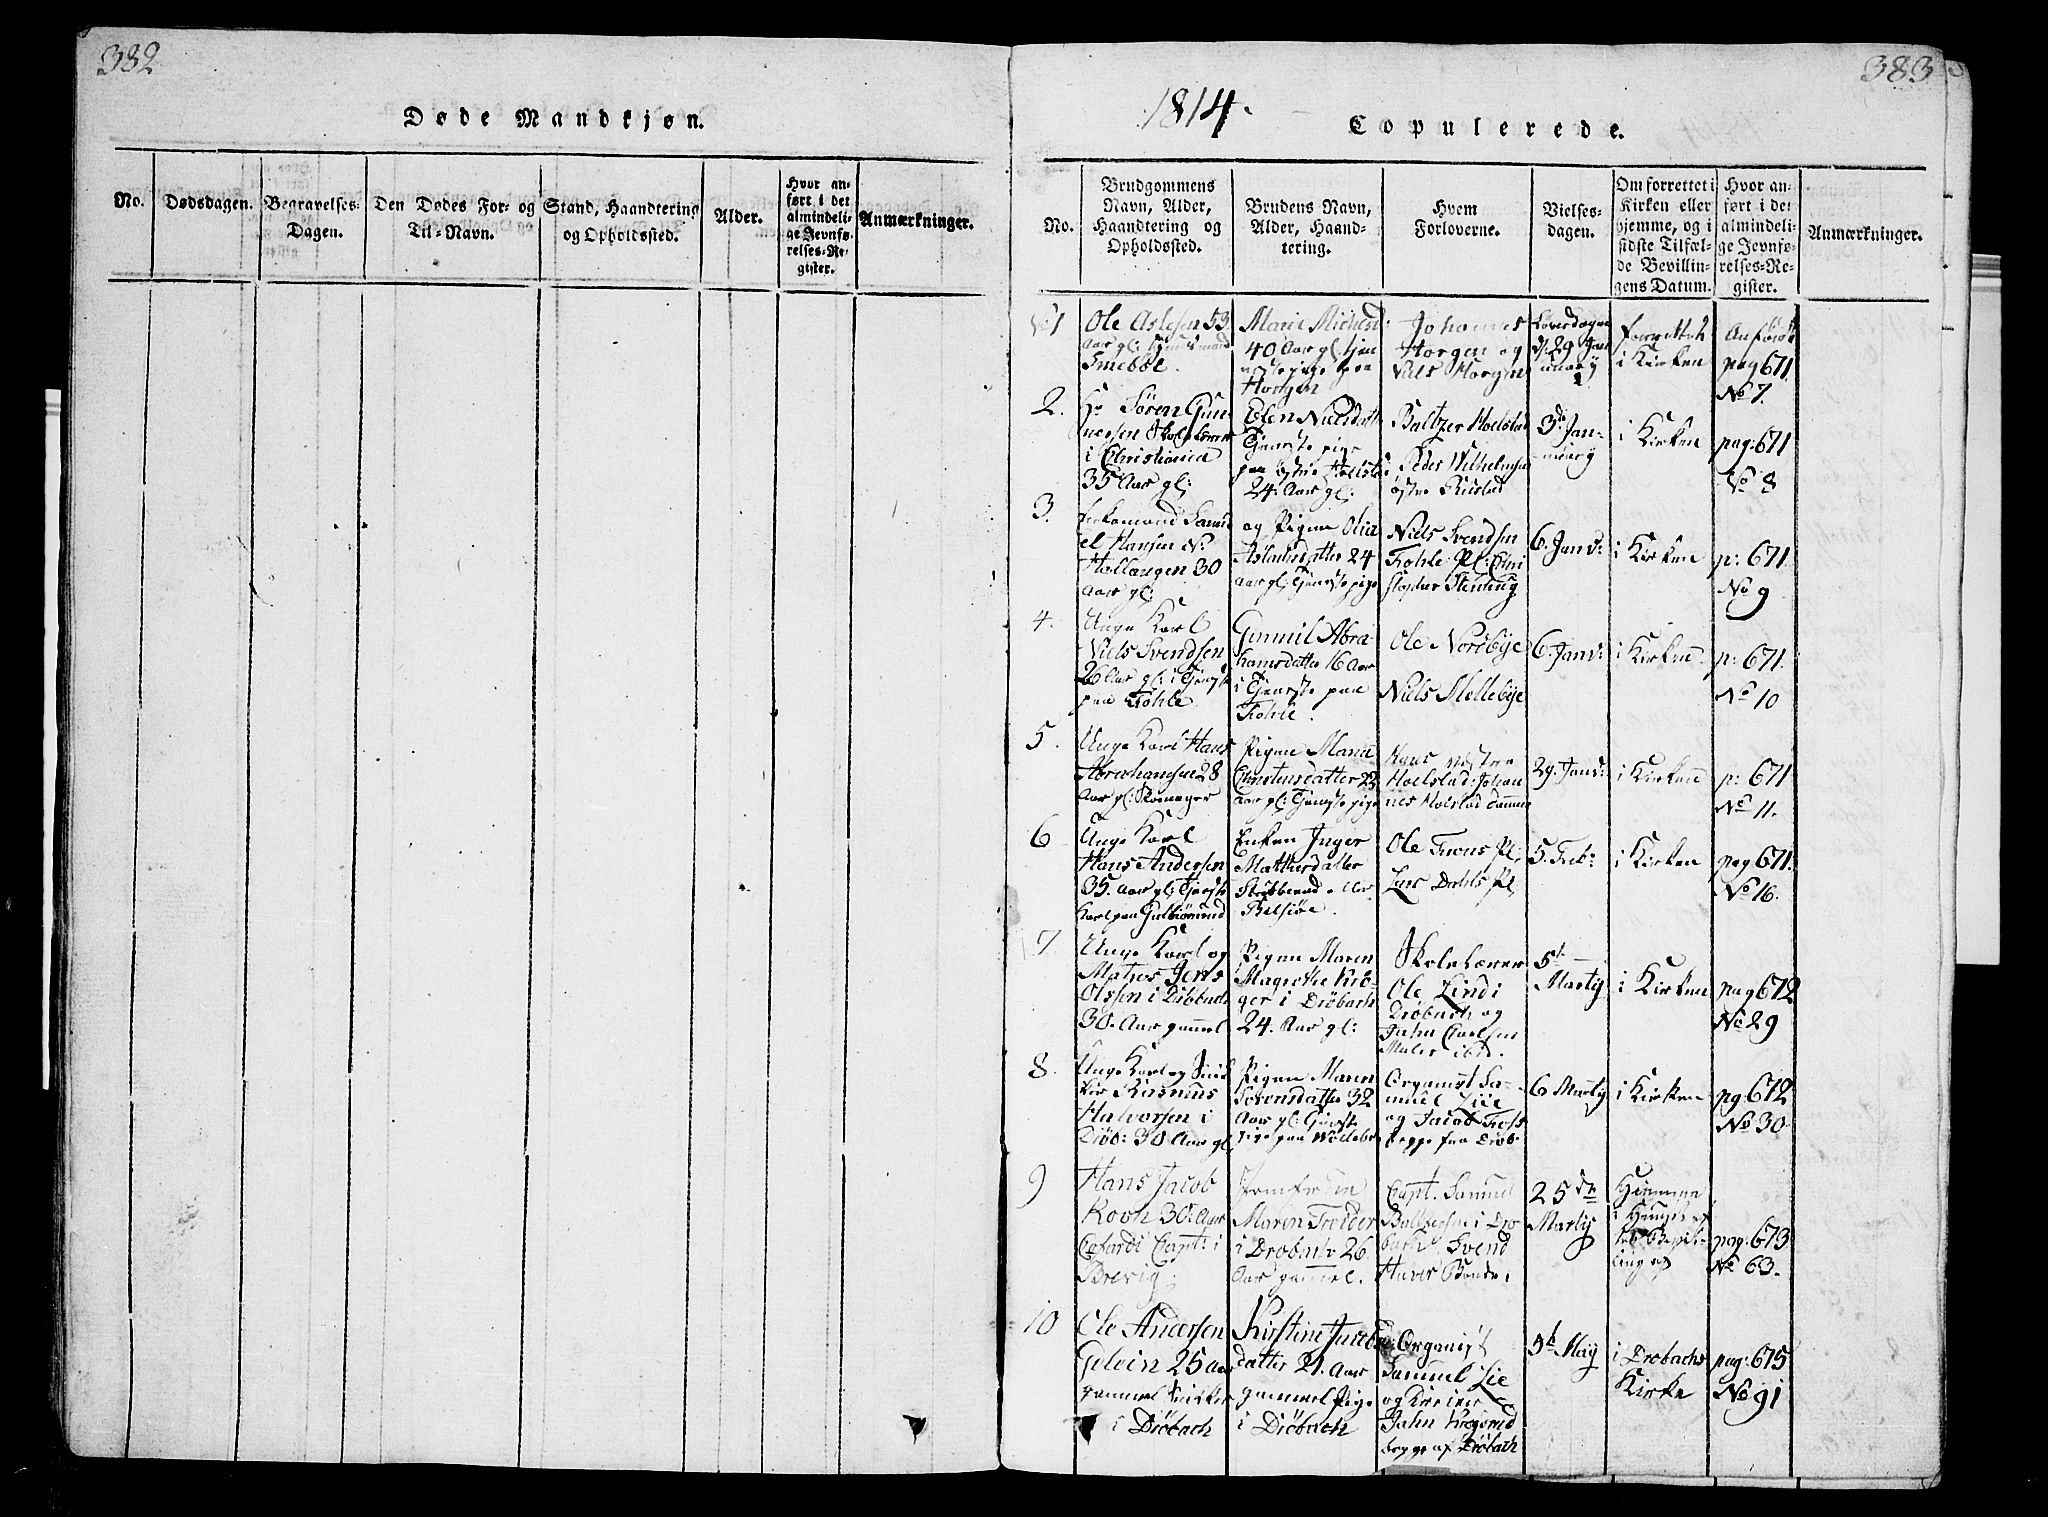 382
Døde Mandkjøn.
No.
Dødsdagen.
Begravelses-
Dagen.
Den Dødes For- og
Til-Navn.
Stand, Haandtering
og Opholdssted.
Alder.
Hvor an-
ført i det
almindeli-
ge Jevnfø-
relses-Re-
gister.
Anmærkninger.
383
1814.
Copulerede.
No.
Brudgommens
Navn, Alder,
Haandtering og
Opholdssted.
Brudens Navn,
Alder, Haand-
tering.
Hvem
Forloverne.
Vielses-
dagen.
Om forrettet i
Kirken eller
hjemme, og i
sidste Tilfæl-
de Bevillin-
gens Datum.
Hvor an-
ført i det
almindeli-
ge Jevnfø-
relses-Re-
gister.
Anmærkninger.
No 1
Ole Aslesen 53
Aar gl:
Smebøl.
Marie
40 Aar gl: tjen
Horgen
Johannes
Horgen og
Niels Horgen
Løverdagen
d. 29 Jan
uary
forrettet
i Kirken
Anført
pag 671
No 7.
2.
Hr Søren Gun-
nersen Skolelærer
i Christiania
35 Aar gl:
Elen Nielsdatt
Tjeneste pige
paa østre Hoelstad
24. Aar gl:
Baltzer Hoelstad
Peder Wilhelmsen
østre Rustad
3de Jan-
uary
i Kirken
pag: 671
No 8
3.
Enkemand Samu
el Hansen
Hallangen 30
Aar gl:
og Pigen Olia
Aslaksdatter 24
Aar gl: Tjeneste pige
Niels Svendsen
Frohle Pl: Chri
stopher
6. Janv:
i Kirken
p: 671
No 9
4.
Unge Karl
Niels Svendsen
26 Aar gl: i Tjeneste
paa Frohle
Gunnil Abra
hamsdatter 16 Aar
i Tjeneste paa
Frohle.
Ole Norsbye
Niels Skellebye
6. Janv:
i Kirken
p: 671.
No 10
5.
Unge Karl Hans
Abrahamsen 28
Aar gl: Skomager
Pigen Maria
Christensdatter 23
Aar gl: Tjeneste pige
Hans vestre
Hoelstad: Johan
nes Hoelstad
29. Janv:
i Kirken
p: 671
No 11.
6
Unge Karl
Hans Andersen
35. Aar gl: Tjeneste
Karl paa
Enken Inger
Mathisdatter
Belsiøe.
Ole Frons Pl:
Lars Dahls Pl.
5. Feb:
i Kirken
pag 671.
No 16.
7
Unge Karl og
Matros Jens
Olssen i Drøbach
30. Aar gammel
Pigen Maren
Magrethe Krø-
ger i Drøbach
24. Aar gl:
Skolelærer
Ole Lindi
Drøbach og
Jahn Carlsen
Maler ibid.
5t
Martij
i Kirken
pag 672
No 29
8.
Unge Karl og Snid
ker Rasmus
Halvorsen i
Drøb: 30 Aar gl
Pigen Maren
Sørensdatter 32
Aar gl: Tjeneste
pige paa
Organist Sa-
muel Lie
og Jacob
begge fra Drøb
6 Martij
i Kirken
pag 672
No 30
9
Hans Jacob
Koch 30. Aar
Capt: i
Brevig.
Jomfrue
Maren Treider
i Drøbach 26.
Aar gammel.
Capt. Samuel
Baltzersen i Drø
bach Svend
25de
Martij
Hiemme
i Huuset
pag: 673
No 63.
10
Ole Andersen
25 Aar
gammel Snidker
i Drøbach
Kirstine Jacobs
datter 21. Aar
gammel Pige
i Drøbach
Organist
Samuel Lie
og
Jahn
begge af Drøbach
9d May
i Drøbachs
Kirke
pag: 675
No 91